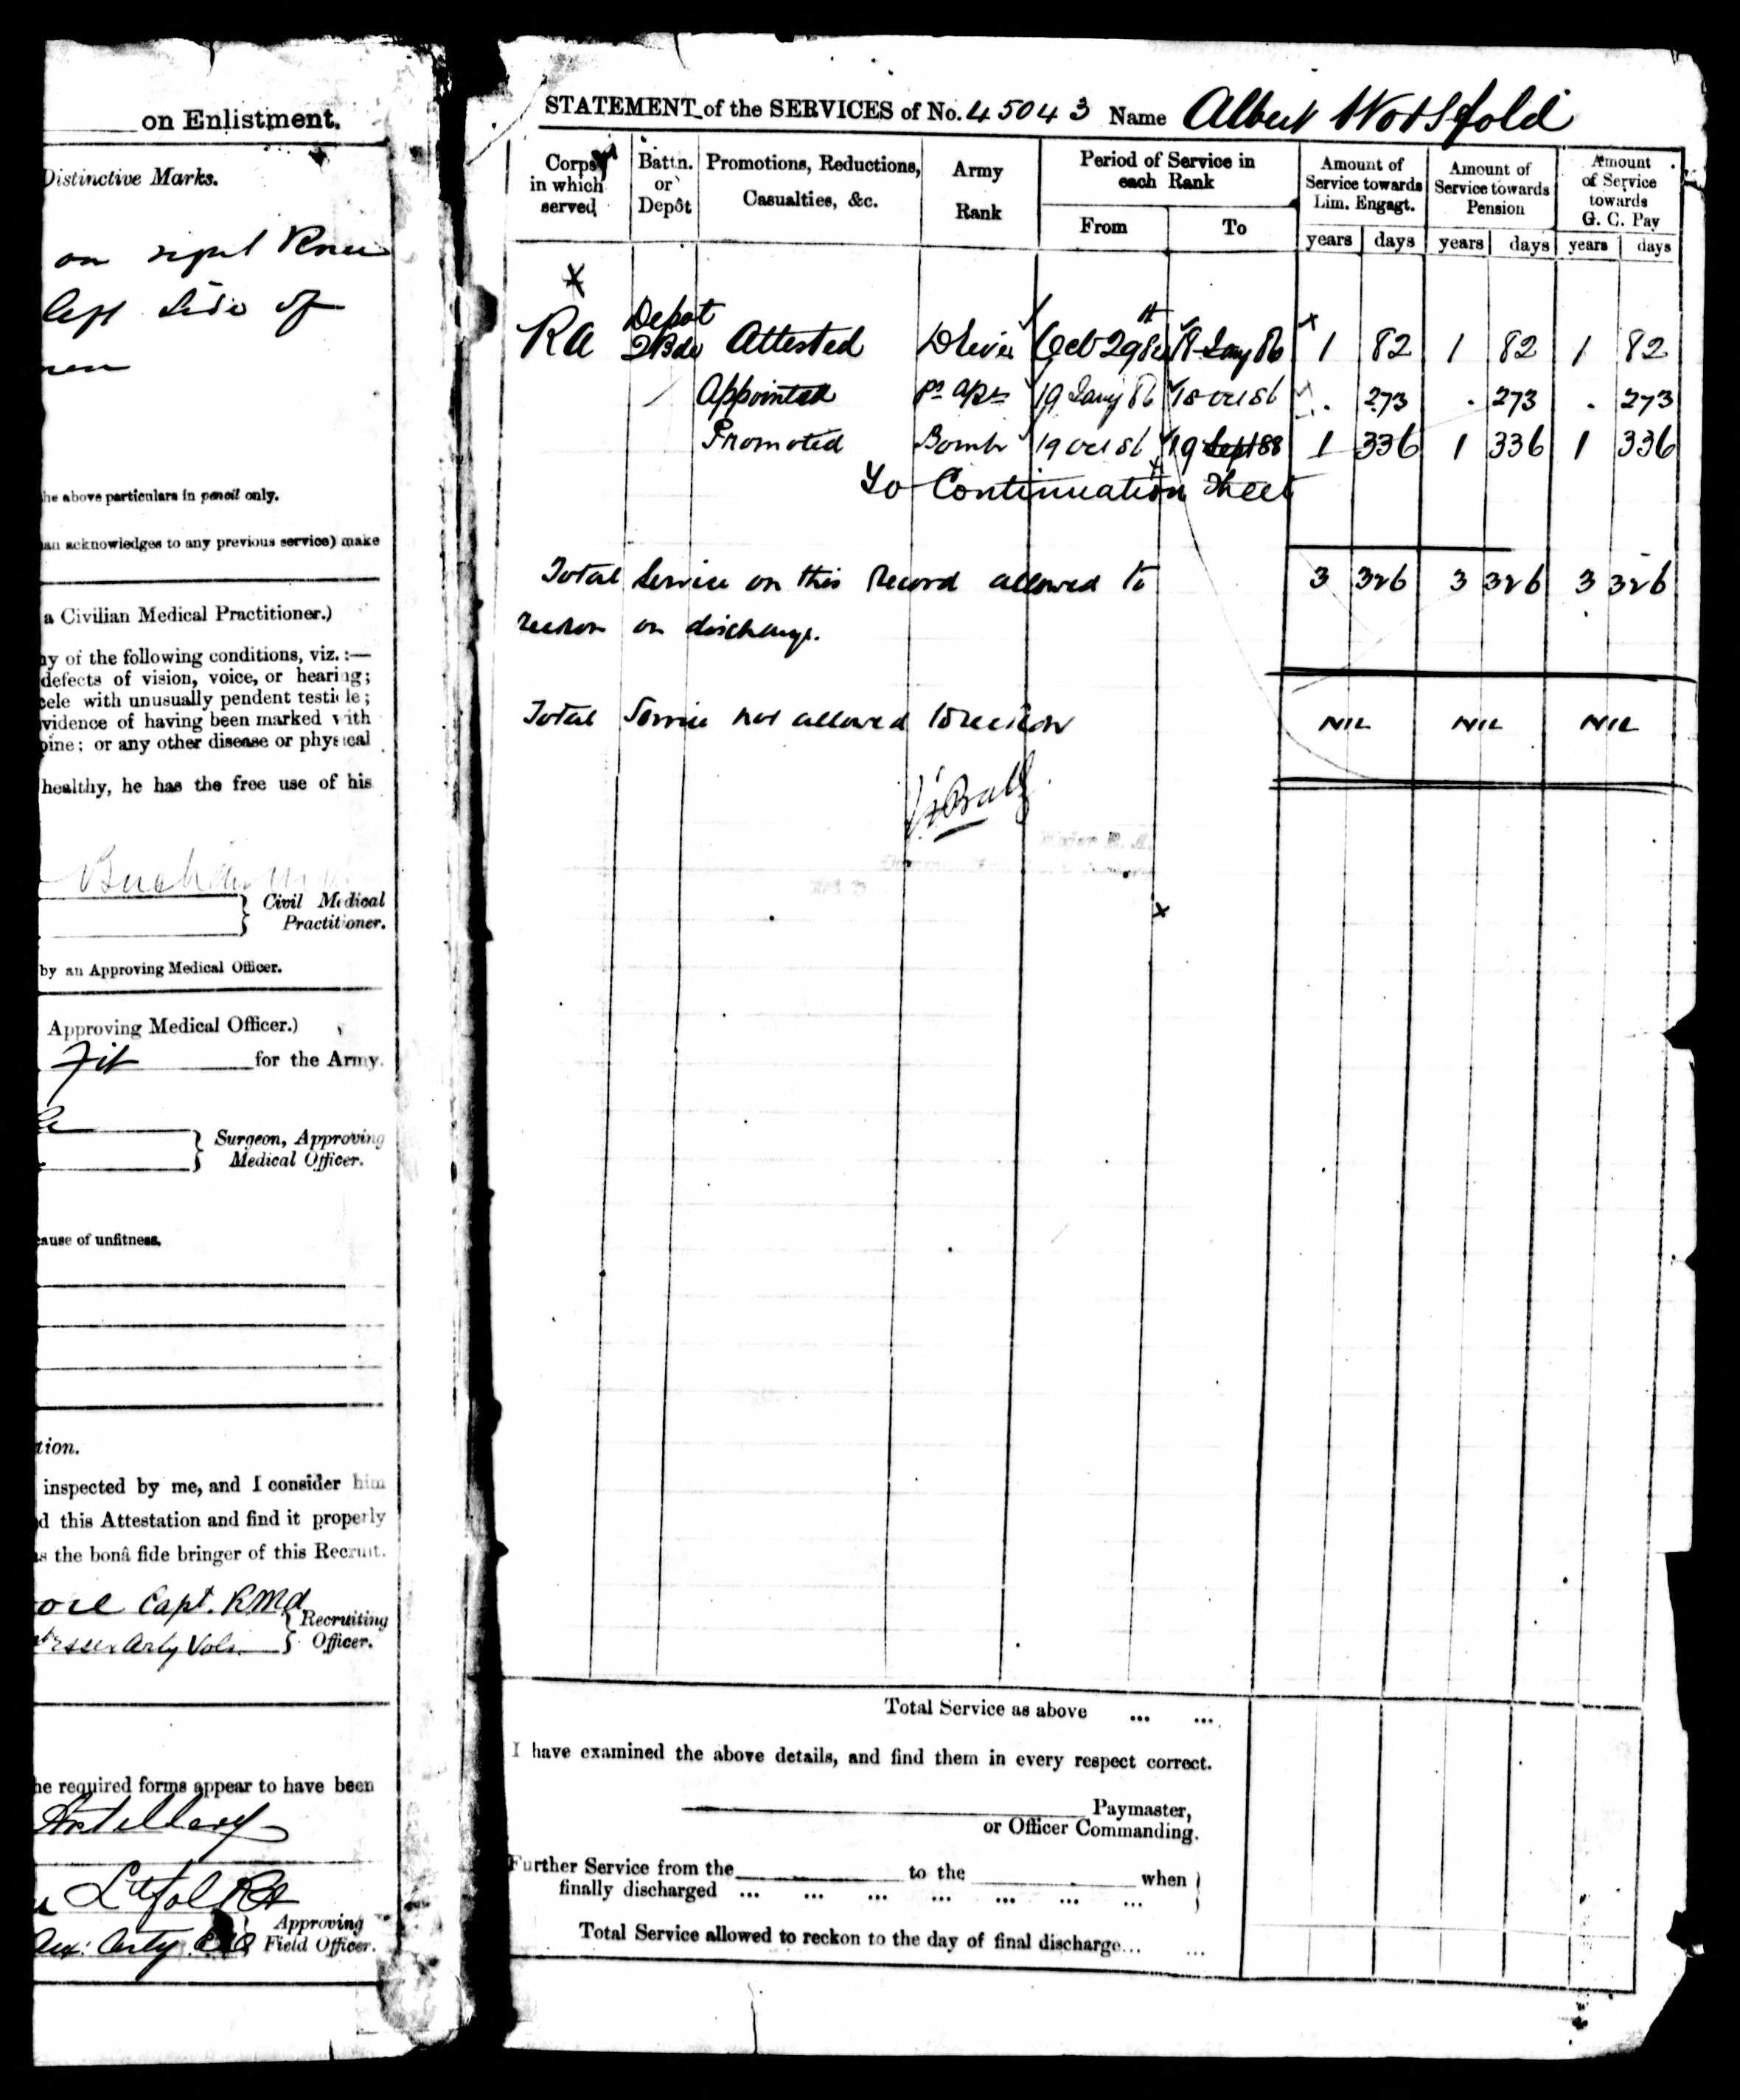 on Enlistment.
Distinctive Marks.
on right Knee
left side of
he above particulars in pencil only.
an acknowledges to any previous service) make
a Civilian Medical Practitioner.)
ny of the following conditions, viz.:—
defects of vision, voice, or hearing;
cele with unusually pendent testicle;
vidence of having been marked with
pine; or any other disease or physical
healthy, he has the free use of his
Civil Medical
Practitioner.
by an Approving Medical Officer.
Approving Medical Officer.)
Fit for the Army.
Surgeon, Approving
Medical Officer.
cause of unfitness.
tion.
inspected by me, and I consider him
d this Attestation and find it properly
as the bonâ fide bringer of this Recruit.
Capt. RMA
Recruiting
Arty Vols. Officer.
he required forms appear to have been
Artillery
Lt Col RA
Approving
Aux: Arty Field Officer.
STATEMENT of the SERVICES of No. 45043 Name Albert Worsfold
Corps in which served
Battn. or Depôt
Promotions, Reductions, Casualties, &c.
Army Rank
Period of Service in each Rank
From To
Amount of Service towards Lim. Engagt.
Amount of Service towards Pension
Amount of Service towards G. C. Pay
years days years days years days
RA Depot 2 Bde Attested Driver Oct 29 84 18 Jany 86 1 82 1 82 1 82
Appointed 19 Jany 86 18 Oct 86 . 273 . 273 . 273
Promoted Bombr 19 Oct 86 19 Sept 88 1 336 1 336 1 336
To Continuation Sheet
Total Service on this Record allowed to 3 326 3 326 3 326
reckon on discharge.
Total Service not allowed to reckon NIL NIL NIL
Major R. A.
Total Service as above ... ...
I have examined the above details, and find them in every respect correct.
Paymaster,
or Officer Commanding.
Further Service from the to the when
finally discharged ... ... ... ... ... ... ...
Total Service allowed to reckon to the day of final discharge... ...